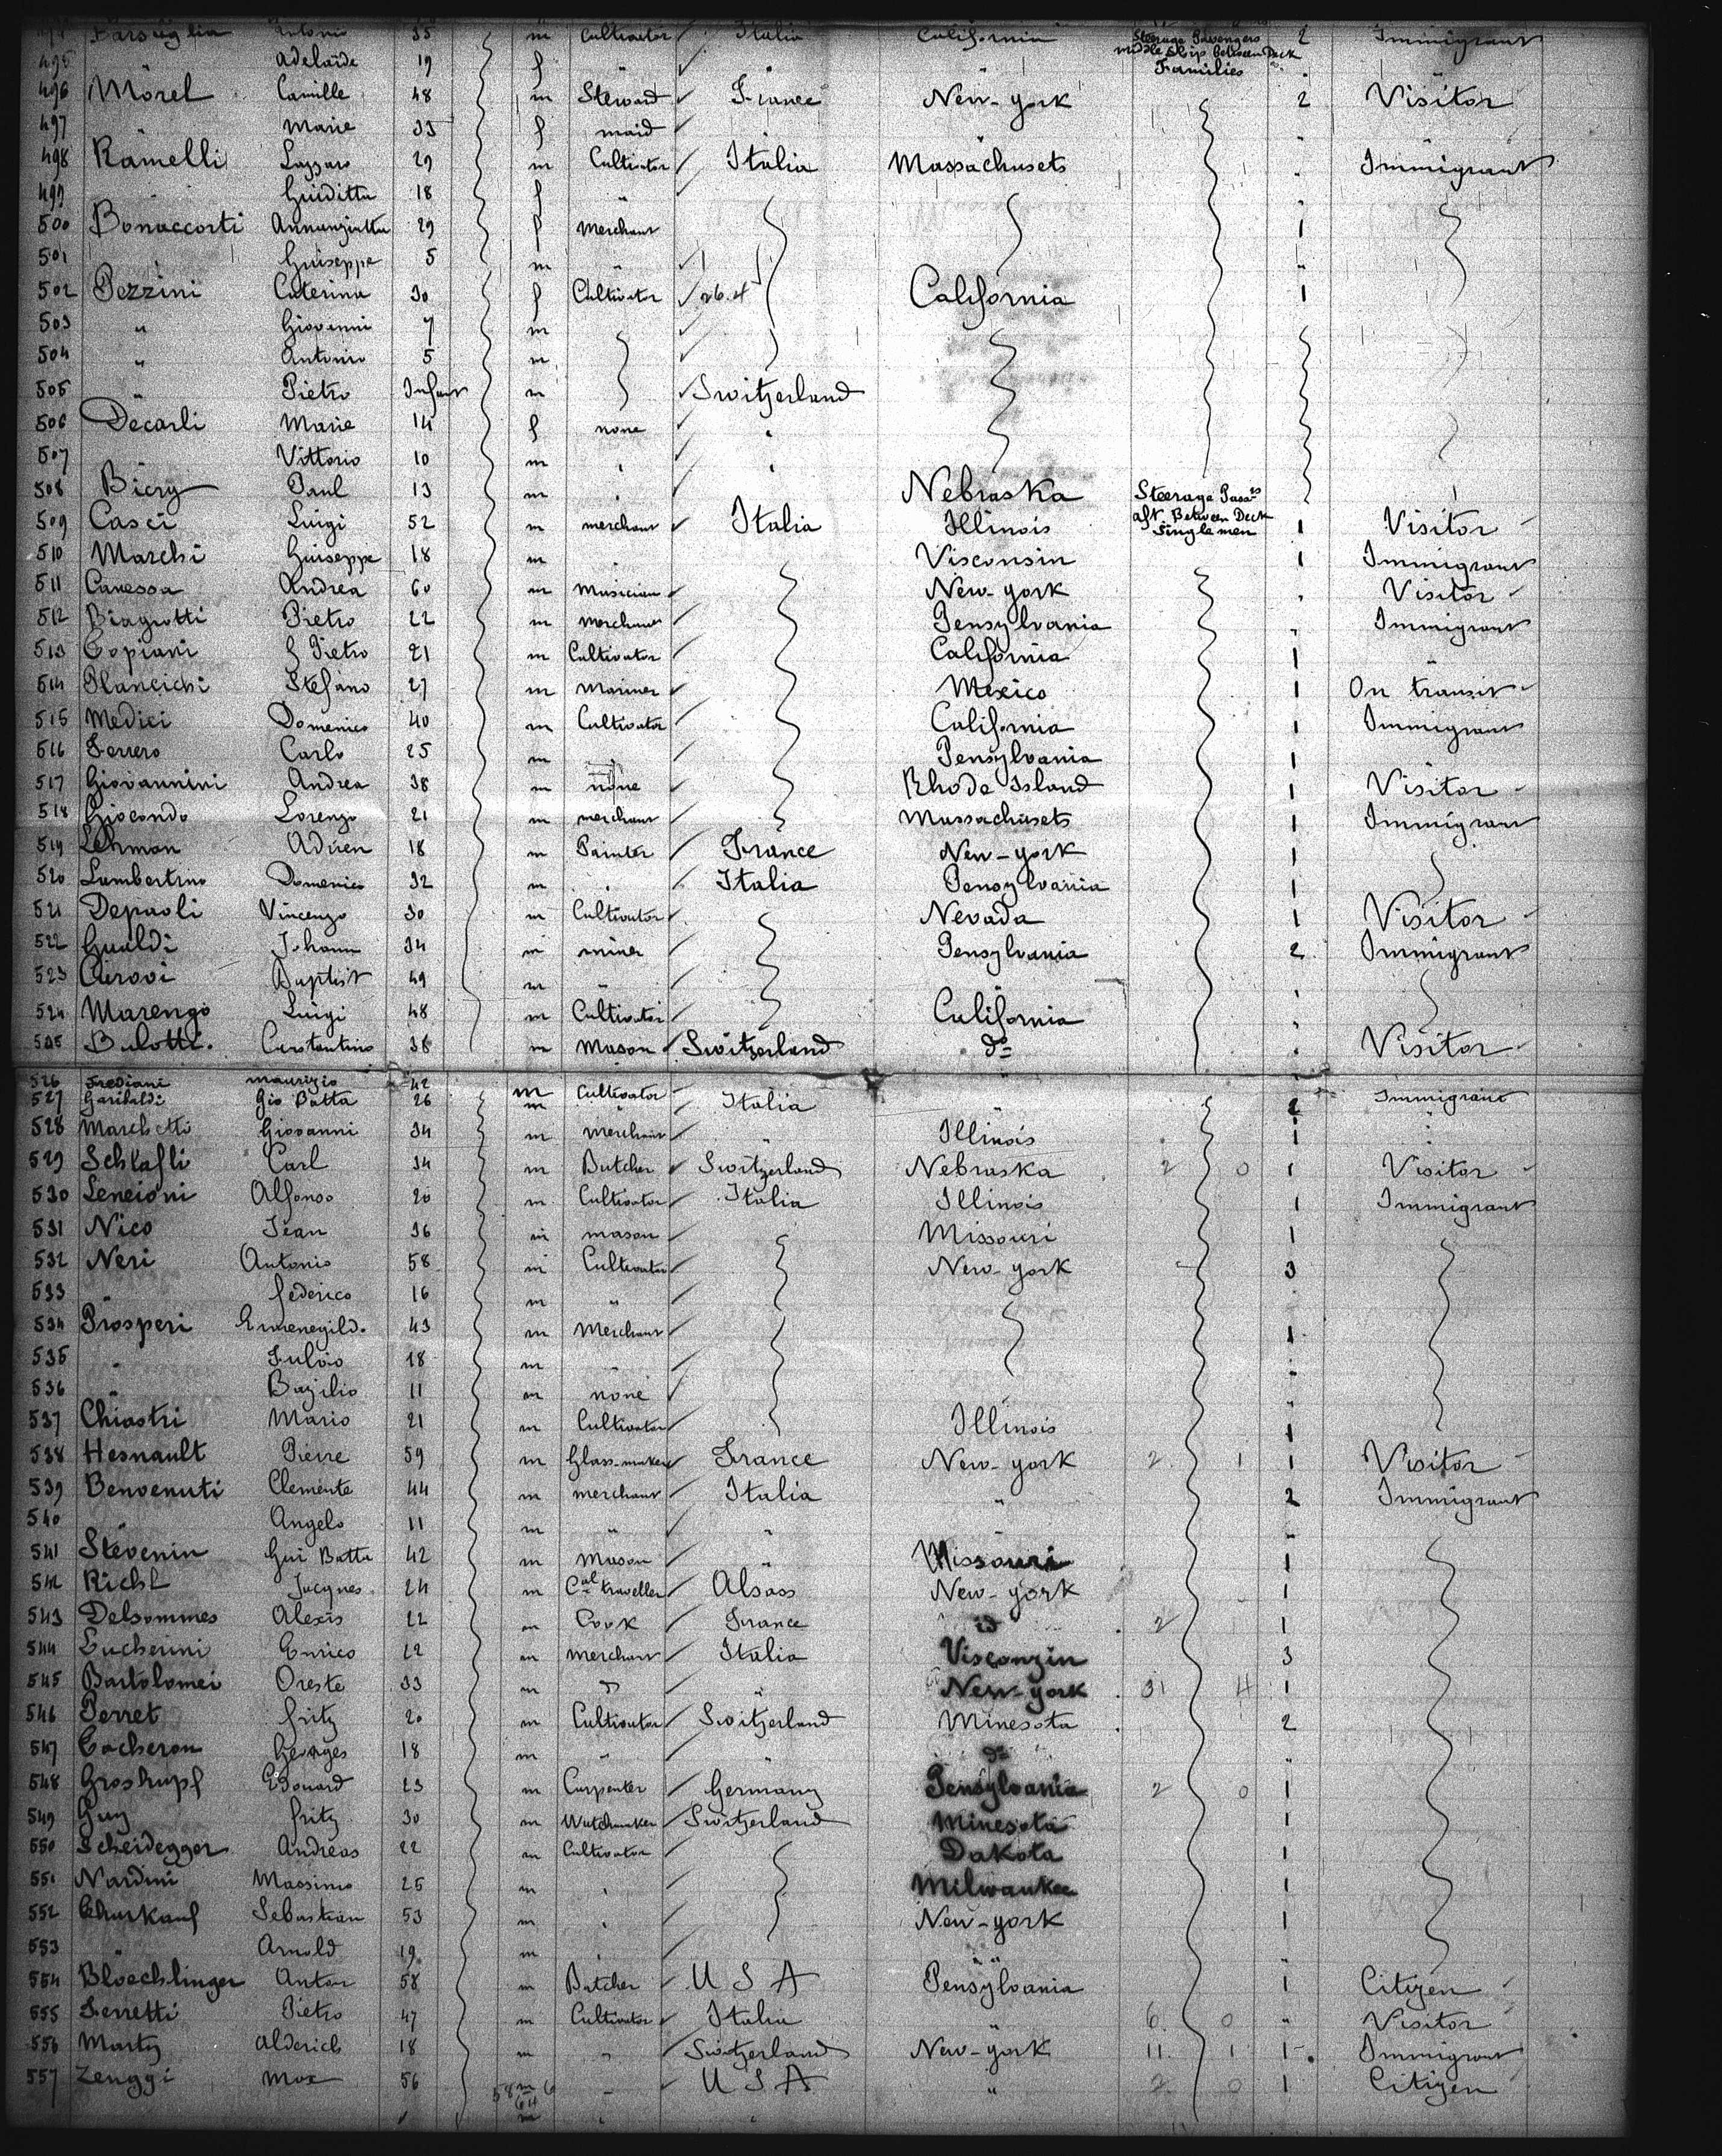 Antonio 35 m Cultivator Italia California Steerage Passengers 2 Immigrant
495 Adelaide 19 f " middle Ship between Deck Families
496 Morel Camille 48 m Steward France New-york 2 Visitor
497 Marie 33 f maid "
498 Ramelli Lazzaro 29 m Cultivator Italia Massachusets " Immigrant
499 " Giuditta 18 f "
500 Bonaccorti Annunziatta 29 f Merchant 1
501 " Giuseppe 5 m " "
502 Pezzini Caterina 30 f Cultivator California 1
503 " Giovanni 7 m
504 " Antonio 5 m
505 " Pietro Infant m Switzerland
506 Decarli Marie 14 f none "
507 Vittorio 10 m " "
508 Biery Paul 13 m " Nebraska Steerage Pass
509 Casci Luigi 52 m merchant Italia Illinois aft. Between Deck Single men 1 Visitor
510 Marchi Giuseppe 18 m " " Visconsin 1 Immigrant
511 Canessa Andrea 60 m Musician New-york " Visitor
512 Biagiotti Pietro 22 m Merchant Pensylvania " Immigrant
513 Copiani Pietro 21 m Cultivator California 1 "
514 Plancichi Stefano 27 m Mariner Mexico 1 On transit
515 Medici Domenico 40 m Cultivator California 1 Immigrant
516 Ferrero Carlo 25 m " Pensylvania 1 "
517 Giovannini Andrea 38 m none Rhode Island 1 Visitor
518 Giocondo Lorenzo 21 m merchant Massachusets 1 Immigrant
519 Lehman Adrien 18 m Painter France New-york 1
520 Lambertino Domenico 32 m " Italia Pensylvania 1
521 Depaoli Vincenzo 30 m Cultivator Nevada 1 Visitor
522 Gualdi Johann 34 m miner Pensylvania 2 Immigrant
523 Baptist 49 m " " "
524 Marengo Luigi 48 m Cultivator California "
525 Bulotti Constantino 38 m Mason Switzerland do " Visitor
526 Frediani maurizio 42 m Cultivator Immigrant
527 Garibaldi Gio Batta 26 m " Italia " 2
528 Marchetti Giovanni 34 m Merchant " Illinois 1 "
529 Schlafli Carl 34 m Butcher Switzerland Nebraska 2 0 1 Visitor
530 Lencioni Alfonso 20 m Cultivator Italia Illinois 1 Immigrant
531 Nico Jean 36 m mason Missouri 1
532 Neri Antonio 58 m Cultivator New-york 3
533 " federico 16 m " "
534 Prosperi Ermenegild. 43 m Merchant 1
535 " Fulvio 18 m " "
536 " Bazilio 11 m none "
537 Chiostri Mario 21 m Cultivator Illinois 1
538 Hesnault Pierre 59 m Glass-maker France New-york 2 1 1 Visitor
539 Benvenuti Clemente 44 m merchant Italia " 2 Immigrant
540 " Angelo 11 m " " " "
541 Stevenin Gui Batta 42 m Mason " Missouri 1
542 Richl Jacques 24 m Cal traveller Alsass New-york 1
543 Delsommes Alexis 22 m Cook France id 2 1
544 Lucherini Enrico 22 m Merchant Italia Visconzin 3
545 Bartolomei Oreste 33 m " " New-york 31 4 1
546 Perret fritz 20 m Cultivator Switzerland Minesota 2
547 Cocheron Georges 18 m " " do "
548 Groskupf Edouard 23 m Carpenter Germany Pensylvania 2 0 1
549 Guy fritz 30 m Watchmaker Switzerland Minesota 1
550 Scheidegger Andréas 22 m Cultivator Dakota 1
551 Nardini Massimo 25 m " Milwaukee 1
552 Sebastian 53 m " New-york 1
553 " Arnold 19 m " " "
554 Bloechlinger Anton 58 m Butcher U S A Pensylvania 1 Citizen
555 Ferretti Pietro 47 m Cultivator Italia " 6 0 " Visitor
556 Marty Alderich 18 m " Switzerland New-york 11 1 1 Immigrant
557 Zenggi Max 56 " U S A " 2 0 1 Citizen